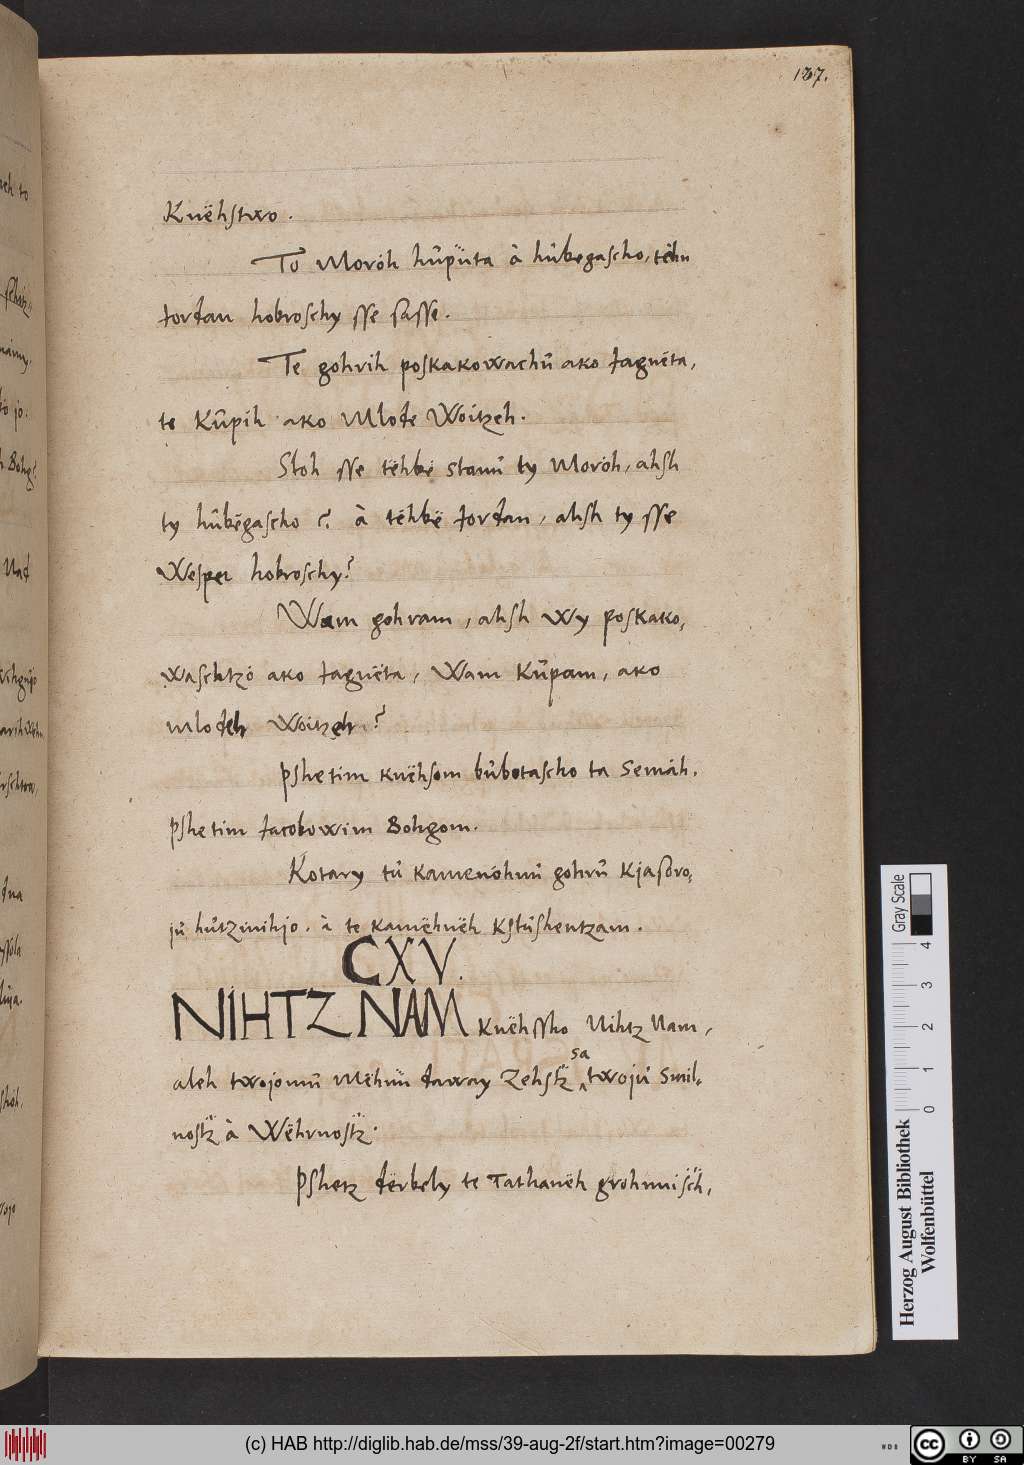 137.
Knëhstwo.
To Moroh hůpüta à hůbegascho, tëhn
Jordan hobroschy sse sasse.
Te gohrih poskakowachů ako Jagnëta,
te Kůpih ako Mlode Woitzeh.
Stoh sse tëhbë stanů ty Moroh, ahsh
ty hůbëgascho? à tëhbë Jordan, ahsh ty sse
Wesper hobroschy?
Wam gohram, ahsh wy poskako,
waschtzo ako Jagnëta, Wam Kůpam, ako
mlodeh Woitzeh?
Pshetim knëhsom bůbotascho ta Semäh.
Pshetim Jacobowim Bohgom.
Kotary tů kamenöhnů gohrů kjasoro,
jů hůtzinihjo. à te kamëhnëh kstůshentzam.
CXV.
NIHTZ NAM knëhssho Nihtz Nam,
aleh twojomů Mëhnů daway Zehstz sa twojů Smil-
nostz à Wëhrnostz.
Pshetz derbely te Tathanëh grohnnisch,
Gray Scale
0 1 2 3 4
Herzog August Bibliothek
Wolfenbüttel
(c) HAB http://diglib.hab.de/mss/39-aug-2f/start.htm?image=00279
WDB
cc BY SA